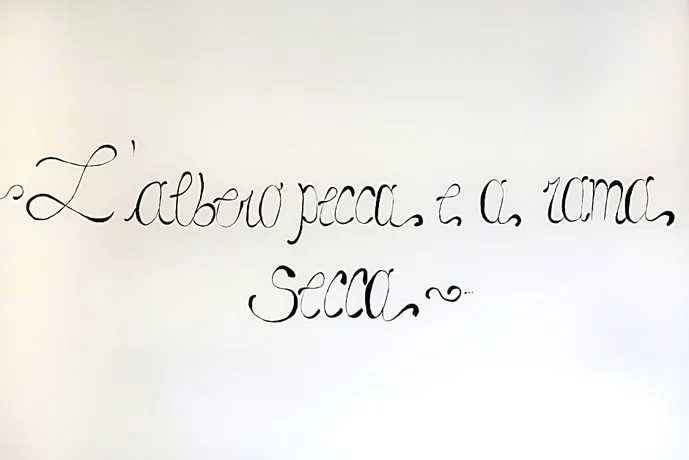 L'albero pecca e a rama
secca